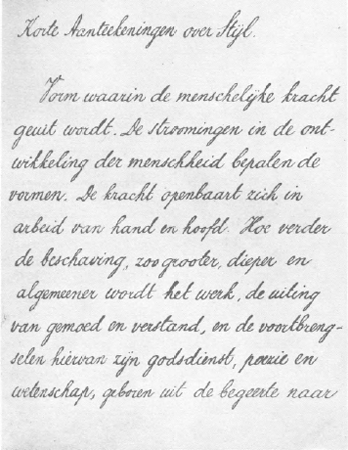 Korte Aanteekeningen over Stijl.
Vorm waarin de menschelijke kracht
geuit wordt. De stroomingen in de ont-
wikkeling der menschheid bepalen de
vormen. De kracht openbaart zich in
arbeid van hand en hoofd. Hoe verder
de beschaving, zoo grooter, dieper en
algemeener wordt het werk, de uiting
van gemoed en verstand, en de voortbreng-
selen hiervan zijn godsdienst, poezie en
wetenschap, geboren uit de begeerte naar